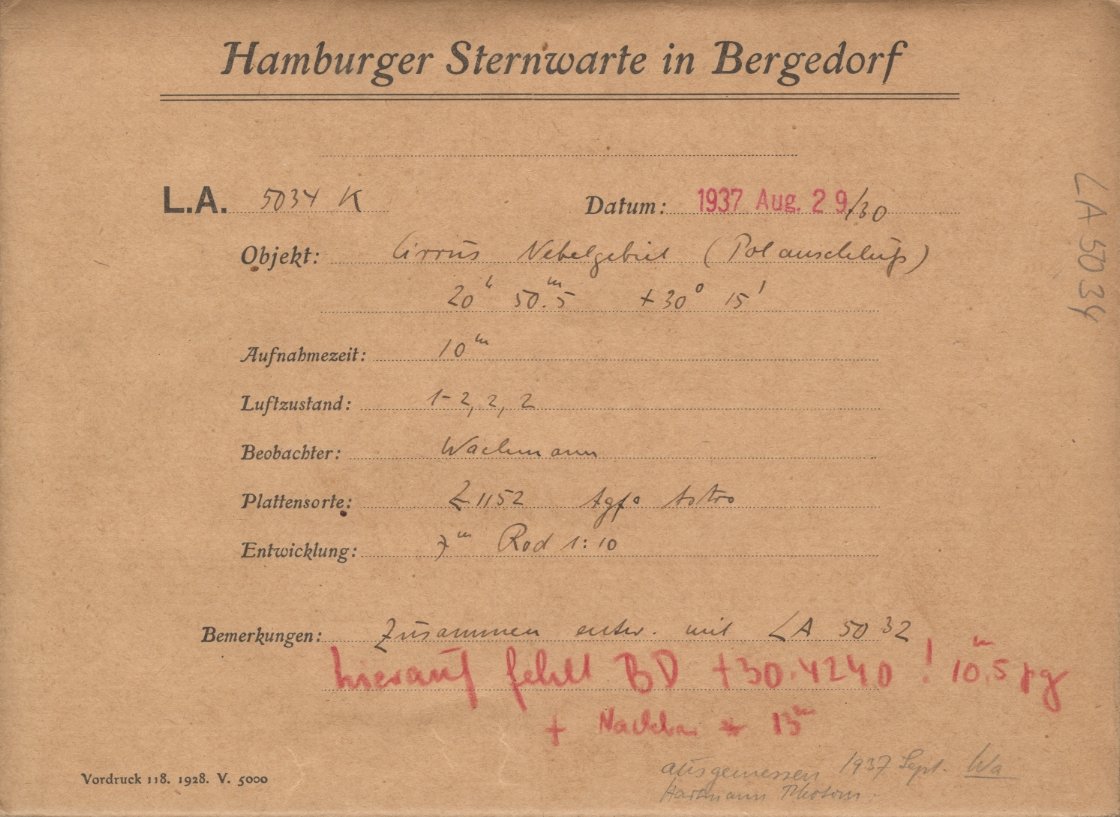 Hamburger Sternwarte in Bergedorf
L.A. 5034 K Datum: 1937 Aug. 29/30
Objekt: Cirrus Nebelgebiet (Polanschluß)
20ʰ 50ᵐ.5 +30° 15'
Aufnahmezeit: 10ᵐ
Luftzustand: 1-2, 2, 2
Beobachter: Wachmann
Plattensorte: Z 1152 Agfa Astro
Entwicklung: 7ᵐ Rod 1:10
Bemerkungen: Zusammen entw. mit LA 5032
hierauf fehlt BD +30.4240 ! 10ᵐ.5 pg
+ Nachbar * 13ᵐ
ausgemessen 1937 Sept. Wa
Hartmann Photom.
Vordruck 118. 1928. V. 5000
LA 5034